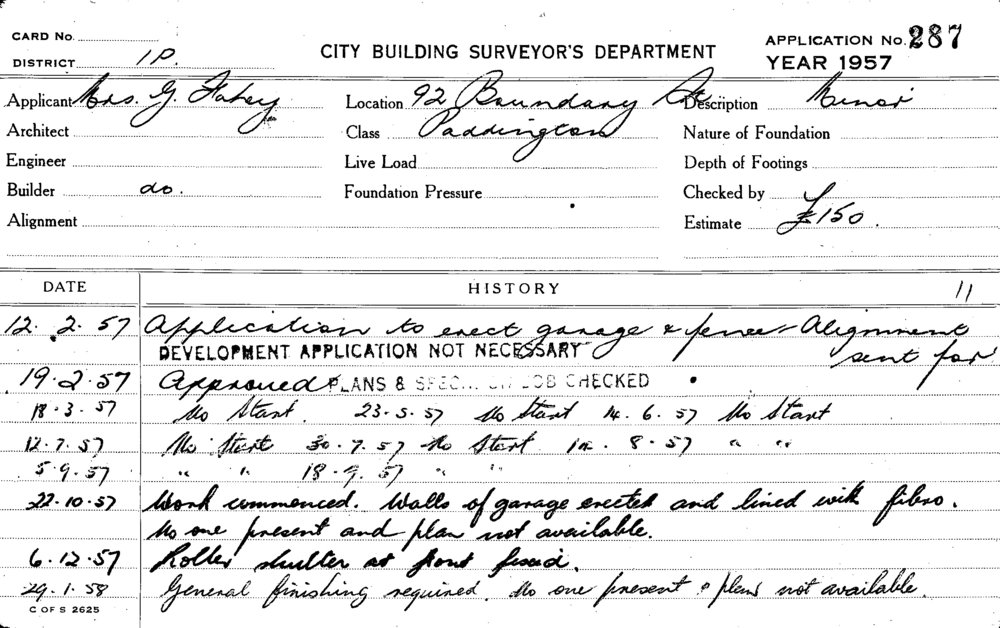 CARD No.
DISTRICT 1P.
CITY BUILDING SURVEYOR'S DEPARTMENT
APPLICATION No. 287
YEAR 1957
Applicant Mrs. G. Fahey Location 92 Boundary St Description Minor
Architect Class Paddington Nature of Foundation
Engineer Live Load Depth of Footings
Builder do. Foundation Pressure Checked by
Alignment Estimate £150.
DATE HISTORY 11
12. 2. 57 Application to erect garage & fence - Alignment
DEVELOPMENT APPLICATION NOT NECESSARY sent for
19. 2. 57 Approved PLANS & SPECN. ON JOB CHECKED
18. 3. 57 No Start. 23. 5. 57 No Start 14. 6. 57 No Start
12. 7. 57 No Start 30. 7. 57 No Start 8. 57 " "
5. 9. 57 " " 18. 9. 57 " "
22. 10. 57 Work commenced. Walls of garage erected and lined with fibro.
No one present and plan not available.
6. 12. 57 Roller shutter at front fixed.
29. 1. 58 General finishing required. No one present & plans not available.
C OF S 2625